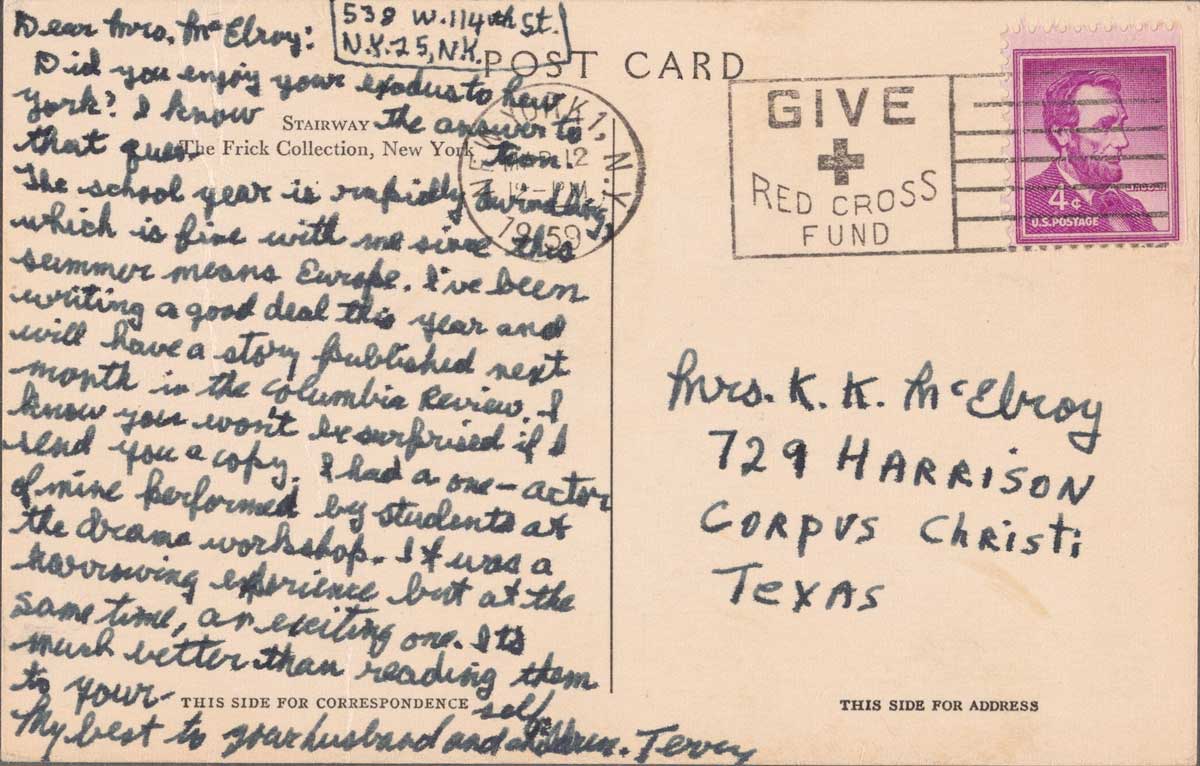 538 W. 114th St.
N.Y. 25, N.Y.
Dear Mrs. McElroy:
Did you enjoy your exodus to New
York? I know the answer to
that ques-tion.
The school year is rapidly dwindling,
which is fine with me since this
summer means Europe. I've been
writing a good deal this year and
will have a story published next
month in the Columbia Review. I
know you won't be surprised if I
send you a copy. I had a one-actor
of mine performed by students at
the drama workshop. It was a
harrowing experience but at the
same time, an exciting one. Its
much better than reading them
to your-self
My best to your husband and children. Terry
STAIRWAY
The Frick Collection, New York
THIS SIDE FOR CORRESPONDENCE
POST CARD
NEW YORK 1, N.Y.
12
1959
GIVE
RED CROSS
FUND
4¢
U.S. POSTAGE
Mrs. K. K. McElroy
729 HARRISON
CORPUS Christi
TEXAS
THIS SIDE FOR ADDRESS